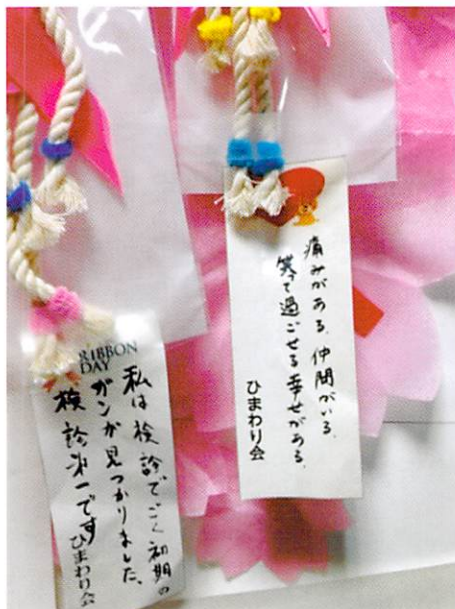 痛みがある、仲間がいる、
笑って過ごせる幸せがある。
ひまわり会
RIBBON
DAY
私は検診でごく初期の
ガンが見つかりました、
検診第一です
ひまわり会